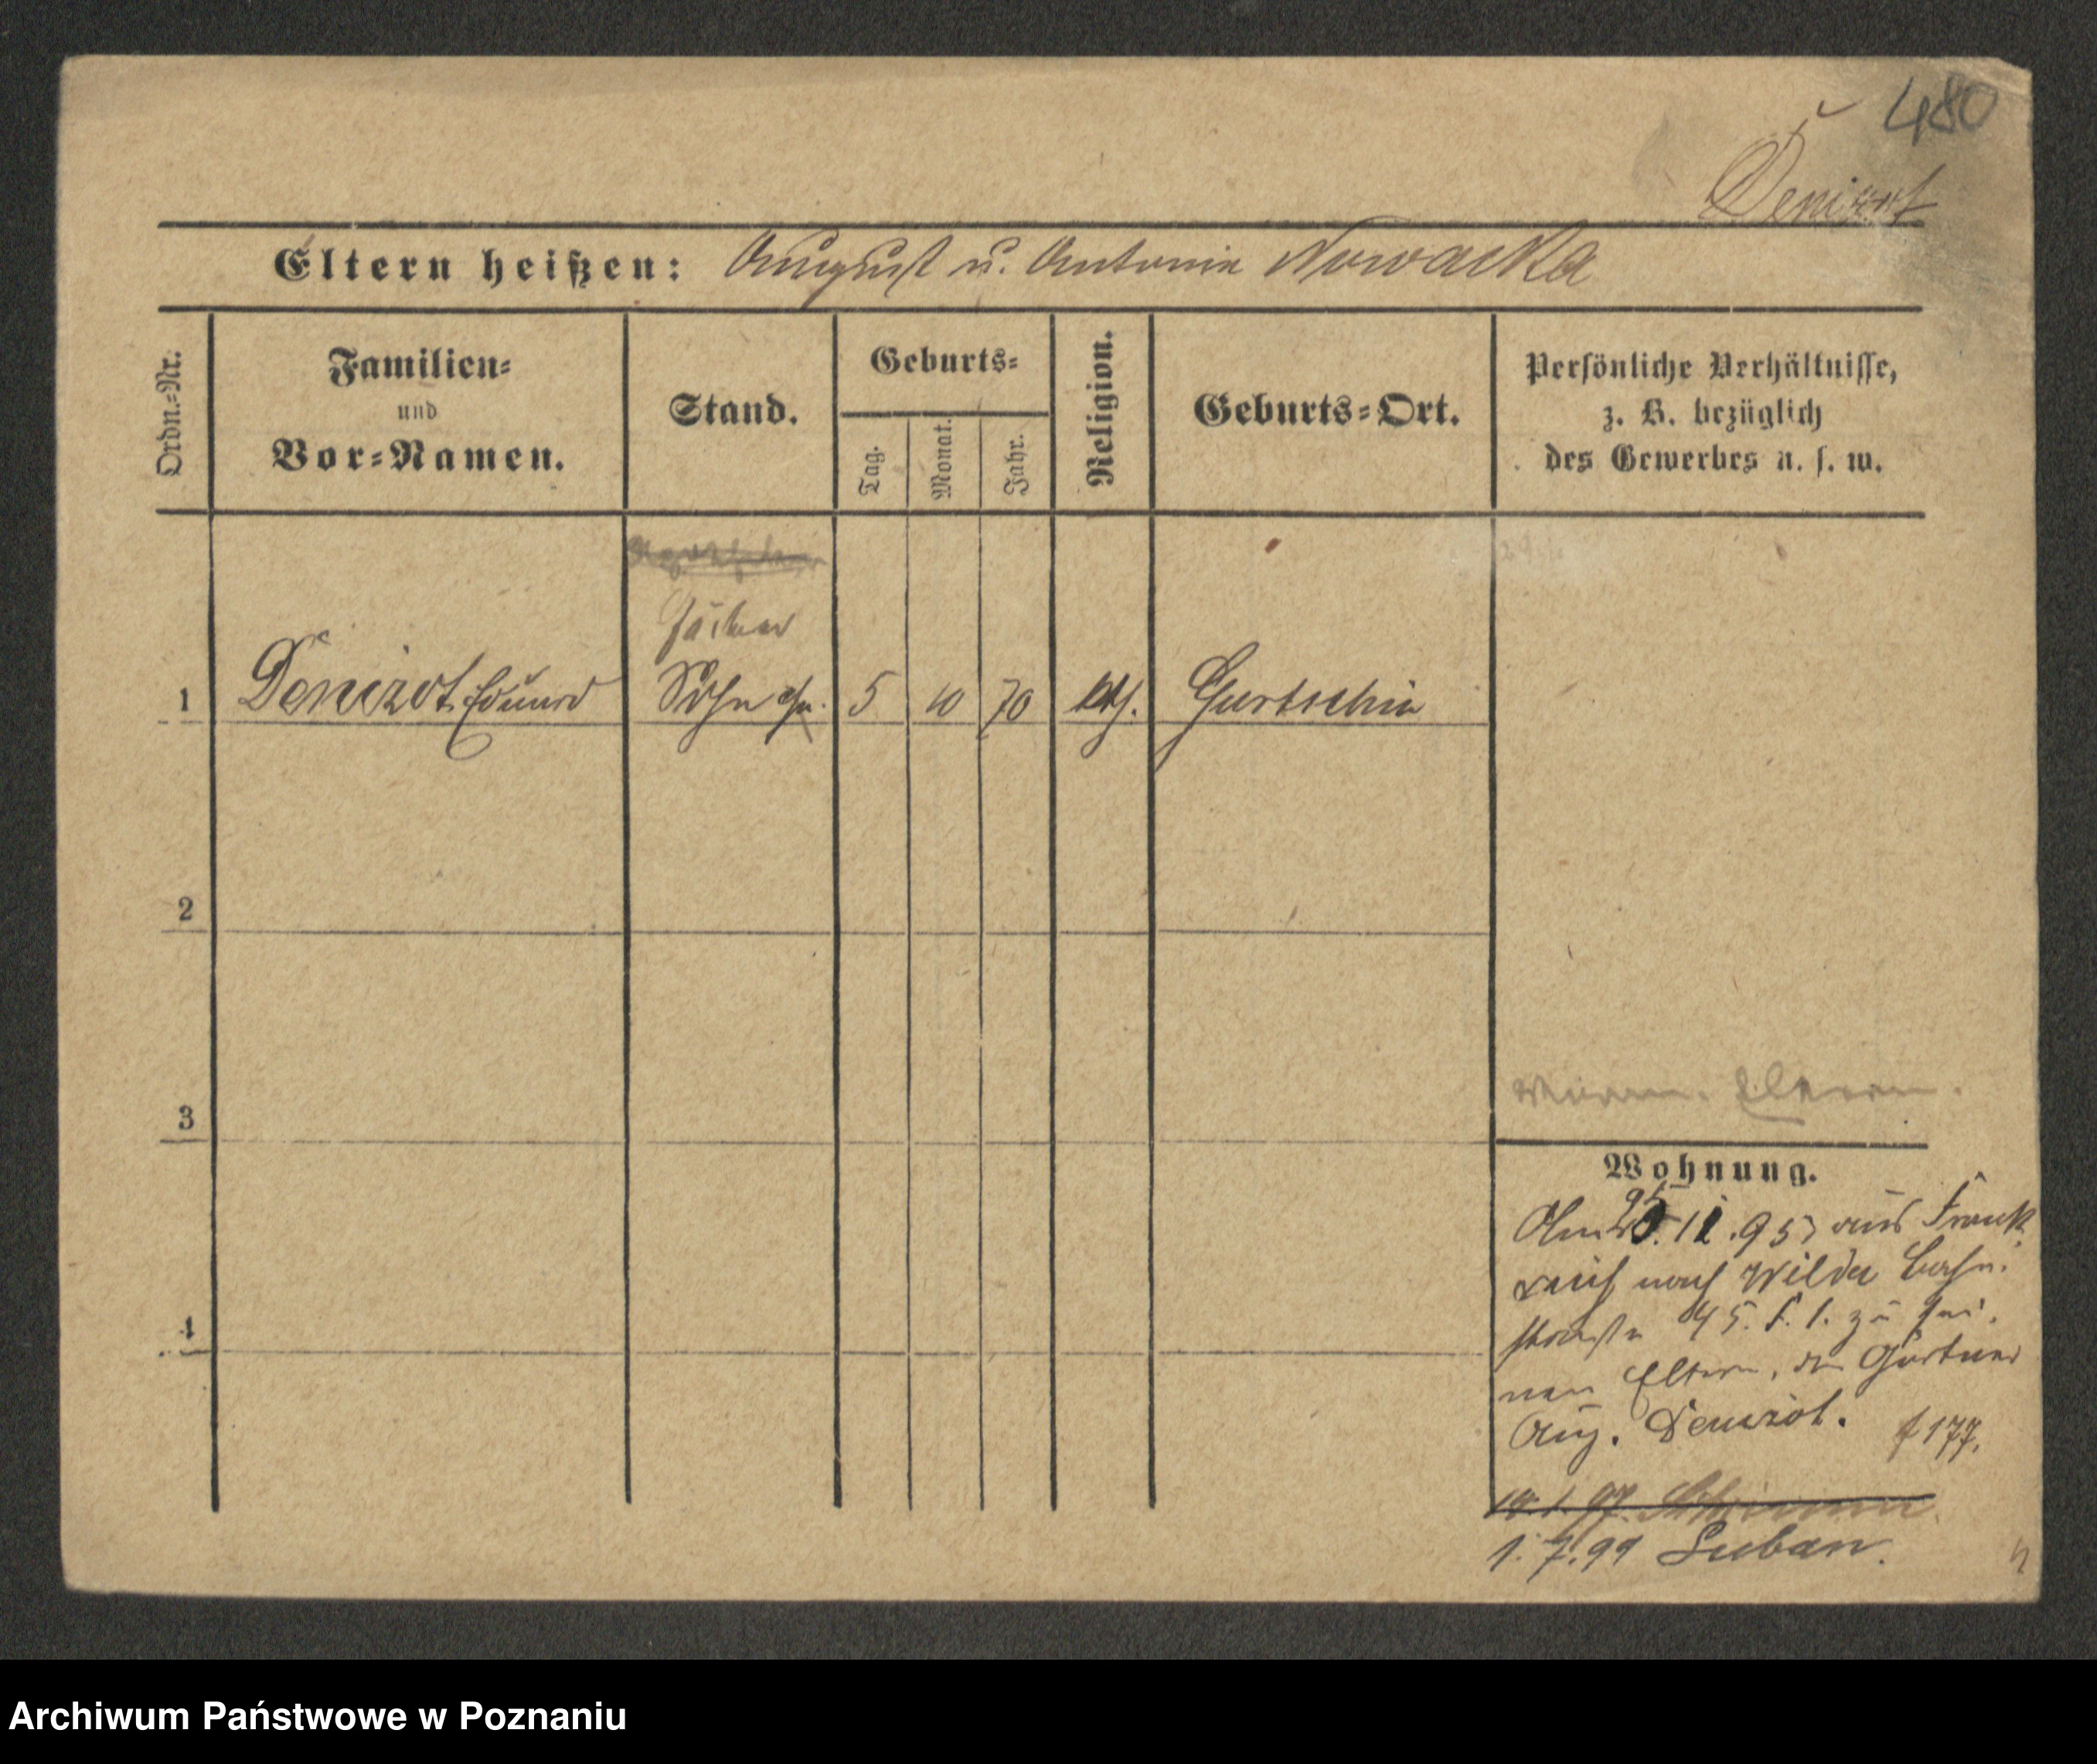 480
Denizot
Eltern heißen: August u. Antonie Nowacka
Ordn.-Nr.
Familien-
und
Vor-Namen.
Stand.
Geburts-
Tag.
Monat.
Jahr.
Religion.
Geburts-Ort.
Persönliche Verhältnisse,
z. B. bezüglich
des Gewerbes u. s. w.
1
Denizot Eduard
Sohn
5
10
70
kth.
Gurtschin
2
3
4
Eltern.
Wohnung.
Am 25.11.95 aus Frank
reich nach Wilda Bahn-
straße 45. b. 1. zu sei-
nen Eltern, dem Gärtner
Aug. Denizot. f 177.
1.7.99 Luban.
Archiwum Państwowe w Poznaniu